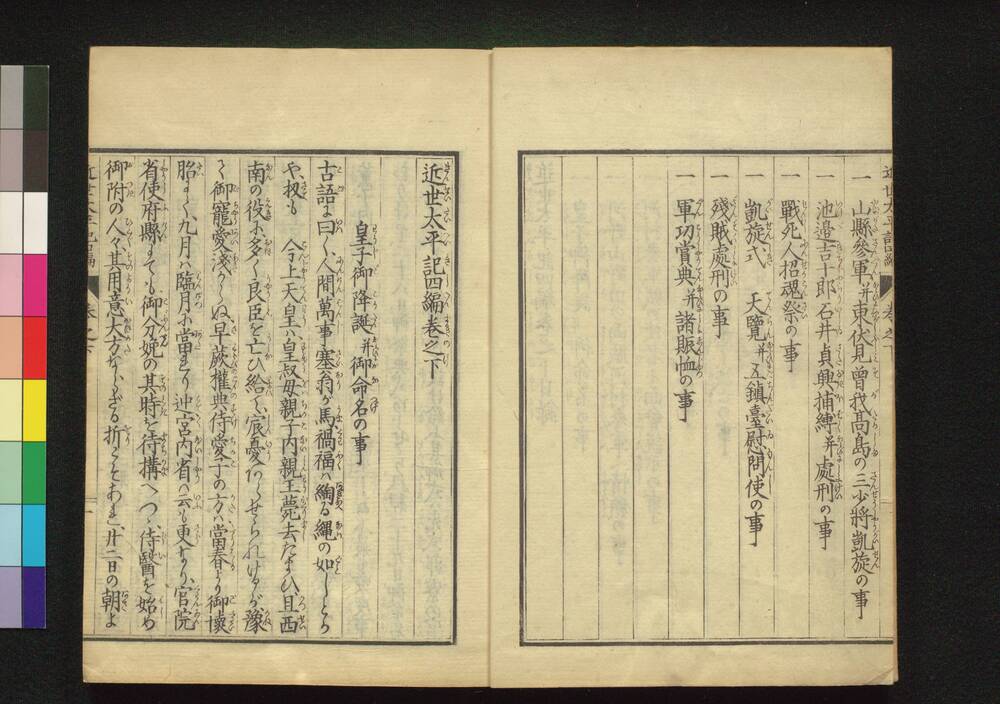 一　山縣參軍并東伏見曽我髙島の三少將凱旋の事
一　池邉吉十郎石井貞興捕縛并處刑の事
一　戰死人招魂祭の事
一　凱旋式　天覽并五鎮臺慰問使の事
一　殘賊處刑の事
一　軍功賞典并諸賑恤の事
近世太平記四編卷之下
皇子御降誕并御命名の事
古語に曰く人間萬事塞翁が馬禍福ハ綯る縄の如しとか
や扨も　今上天皇ハ皇叔母親子内親王薨去たまひ且西
南の役に多く良臣を亡ひ給く宸憂
く御寵愛淺からぬ早蕨權典侍愛子の方ハ當春より御懷
胎まし〱九月ハ臨月に當せり迚宮内省ハ云も更なり官院
省使府縣までも御分娩の其時を待構へつゝ侍醫を始め
御附の人々其用意大方ならざる折こそあれ廿二日の朝よ
近世太平記四編　卷之下